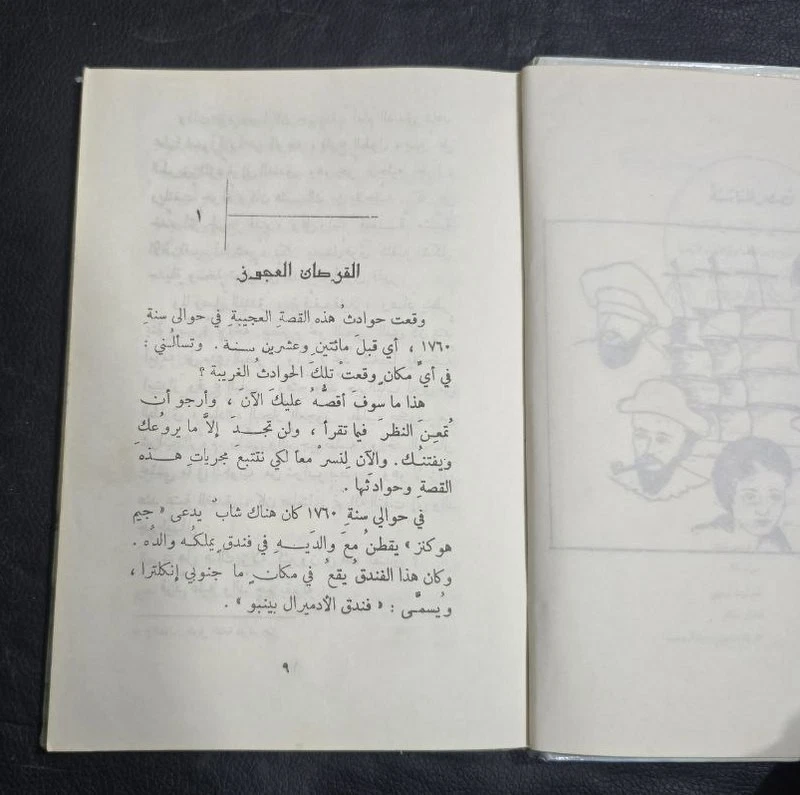 ١
القرصان العجوز
وقعت حوادثُ هذه القصةِ العجيبةِ في حوالى سنةِ
١٧٦٠ ، أي قبلَ مائتينِ وعشرين سنة . وتسألُني :
في أيِّ مكانٍ وقعتْ تلكَ الحوادثُ الغريبة ؟
هذا ما سوفَ أقصُّهُ عليكَ الآنَ ، وأرجو أن
تُمعِنَ النظرَ فيما تقرأ ، ولن تجدَ إلاَّ ما يروعُك
ويفتنك . والآن لِنسرْ معاً لكي نتتبعَ مجريات هذه
القصةِ وحوادثَها .
في حوالي سنةِ ١٧٦٠ كان هناك شابٌ يدعى « جيم
هوكنز » يقطنُ معَ والدَيه في فندقٍ يملكُه والدُه .
وكان هذا الفندقُ يقعُ في مكانٍ ما جنوبي إنكلترا ،
ويُسمَّى : « فندق الأدميرال بينبو » .
٩